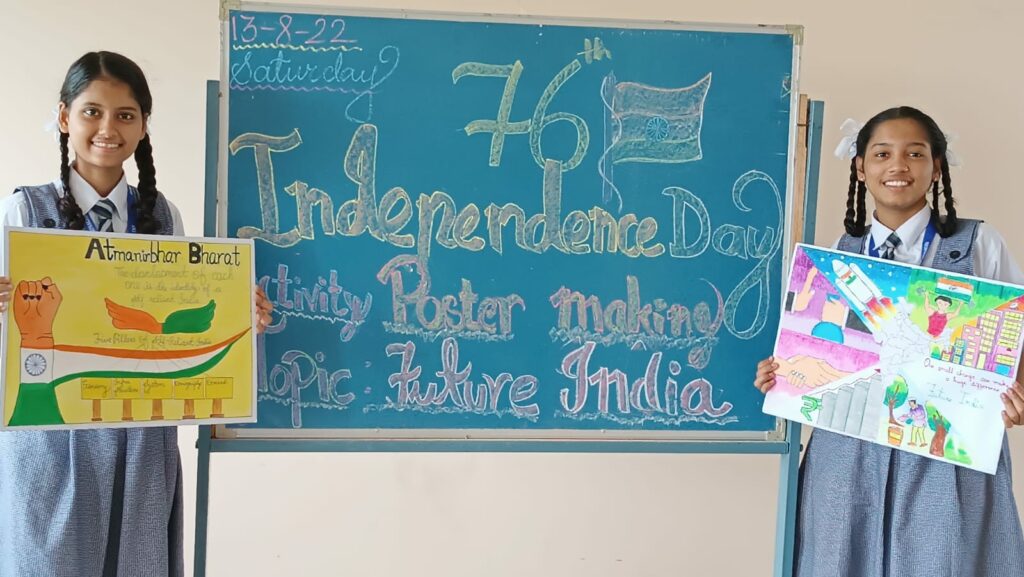 13-8-22
Saturday
76th
Independence Day
ctivity Poster making
Topic : Future India
Atmanirbhar Bharat
The development of each
one is the identity of a
self reliant India
Five pillars of self Reliant India
Economy Infra structure System Demography Demand
small change can make
a huge difference
Future India